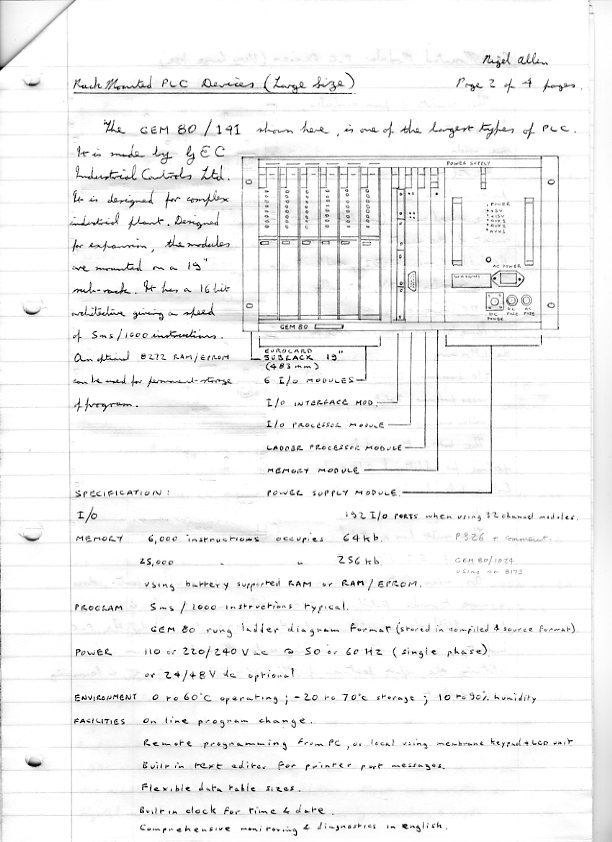 Nigel Allen
Rack Mounted PLC Devices (Large Size)
Page 2 of 4 pages.
The GEM 80/141 shown here, is one of the largest types of PLC.
It is made by GEC
Industrial Controls Ltd.
It is designed for complex
industrial plant. Designed
for expansion, the modules
are mounted on a 19"
sub-rack. It has a 16 bit
architective giving a speed
of 5ms/1000 instructions.
An optional 8272 RAM/EPROM
can be used for permanent-storage
of program.
POWER SUPPLY
POWER
+5V
+15V
AUX 1
AUX 2
AUX 3
AC POWER
DC POWER
DC FUSE
AC FUSE
GEM 80
EUROCARD
SUBRACK 19"
(483 mm)
6 I/O MODULES
I/O INTERFACE MOD.
I/O PROCESSOR MODULE
LADDER PROCESSOR MODULE
MEMORY MODULE
POWER SUPPLY MODULE
SPECIFICATION:
I/O 192 I/O PORTS when using 32 channel modules.
MEMORY 6,000 instructions occupies 64kb. P326 + comment.
25,000 " " 256 kb. GEM 80/
using an 8173
using battery supported RAM or RAM/EPROM.
PROGRAM 5ms / 1000 instructions typical.
GEM 80 rung ladder diagram format (stored in compiled & source format)
POWER 110 or 220/240 V ac @ 50 or 60 HZ (single phase)
or 24/48V dc optional
ENVIRONMENT 0 to 60°C operating; -20 to 70°C storage; 10 to 90% humidity
FACILITIES On line program change.
Remote programming from PC, or local using membrane keypad + LCD unit
Built in text editor for printer port messages.
Flexible data table sizes.
Built in clock for time & date.
Comprehensive monitoring & diagnostics in english.